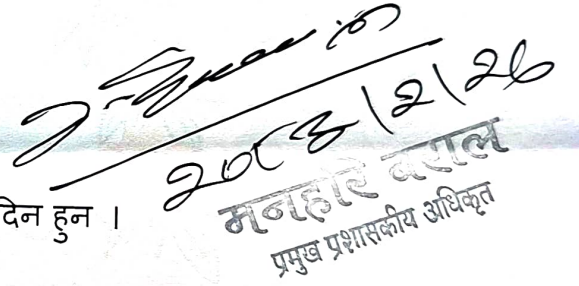 २०८३|२|२६
देन हुन ।
मनहरि बराल
प्रमुख प्रशासकीय अधिकृत